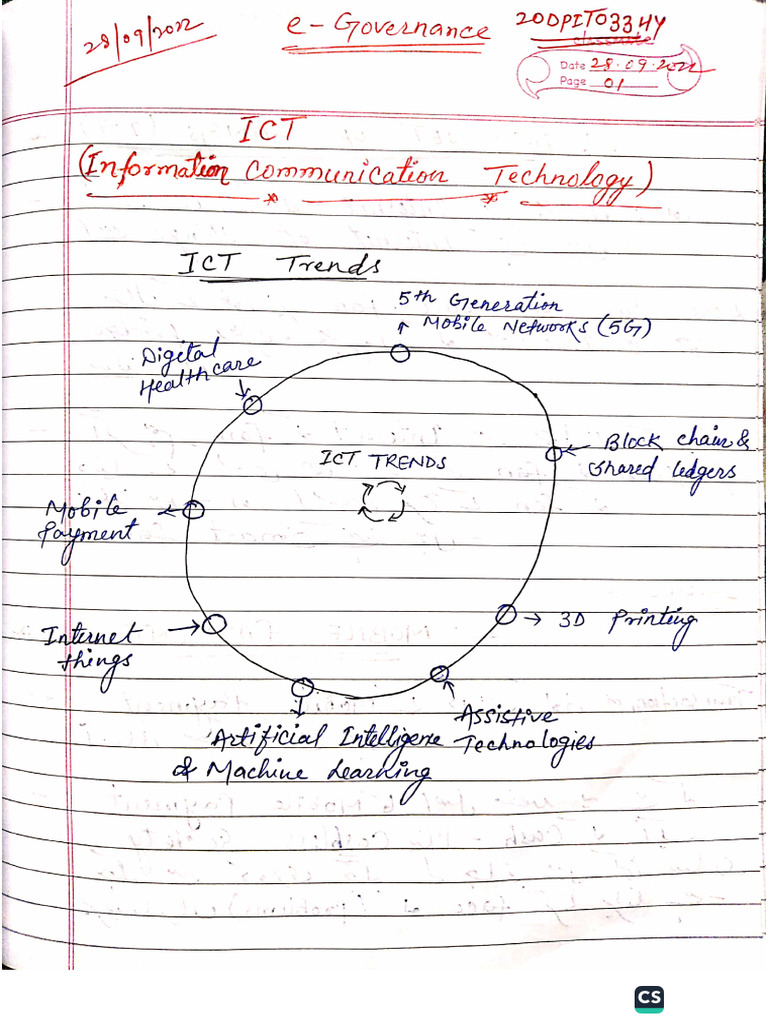 28/09/2022
e-Governance
20DPIT0334Y
classmate
Date 28.09.2022
Page 01
ICT
(Information Communication Technology)
ICT Trends
5th Generation
Mobile Networks (5G)
Digital
Healthcare
Block chain &
Shared ledgers
ICT TRENDS
Mobile
Payment
3D Printing
Internet
things
Assistive
Technologies
Artificial Intelligence
& Machine Learning
CS